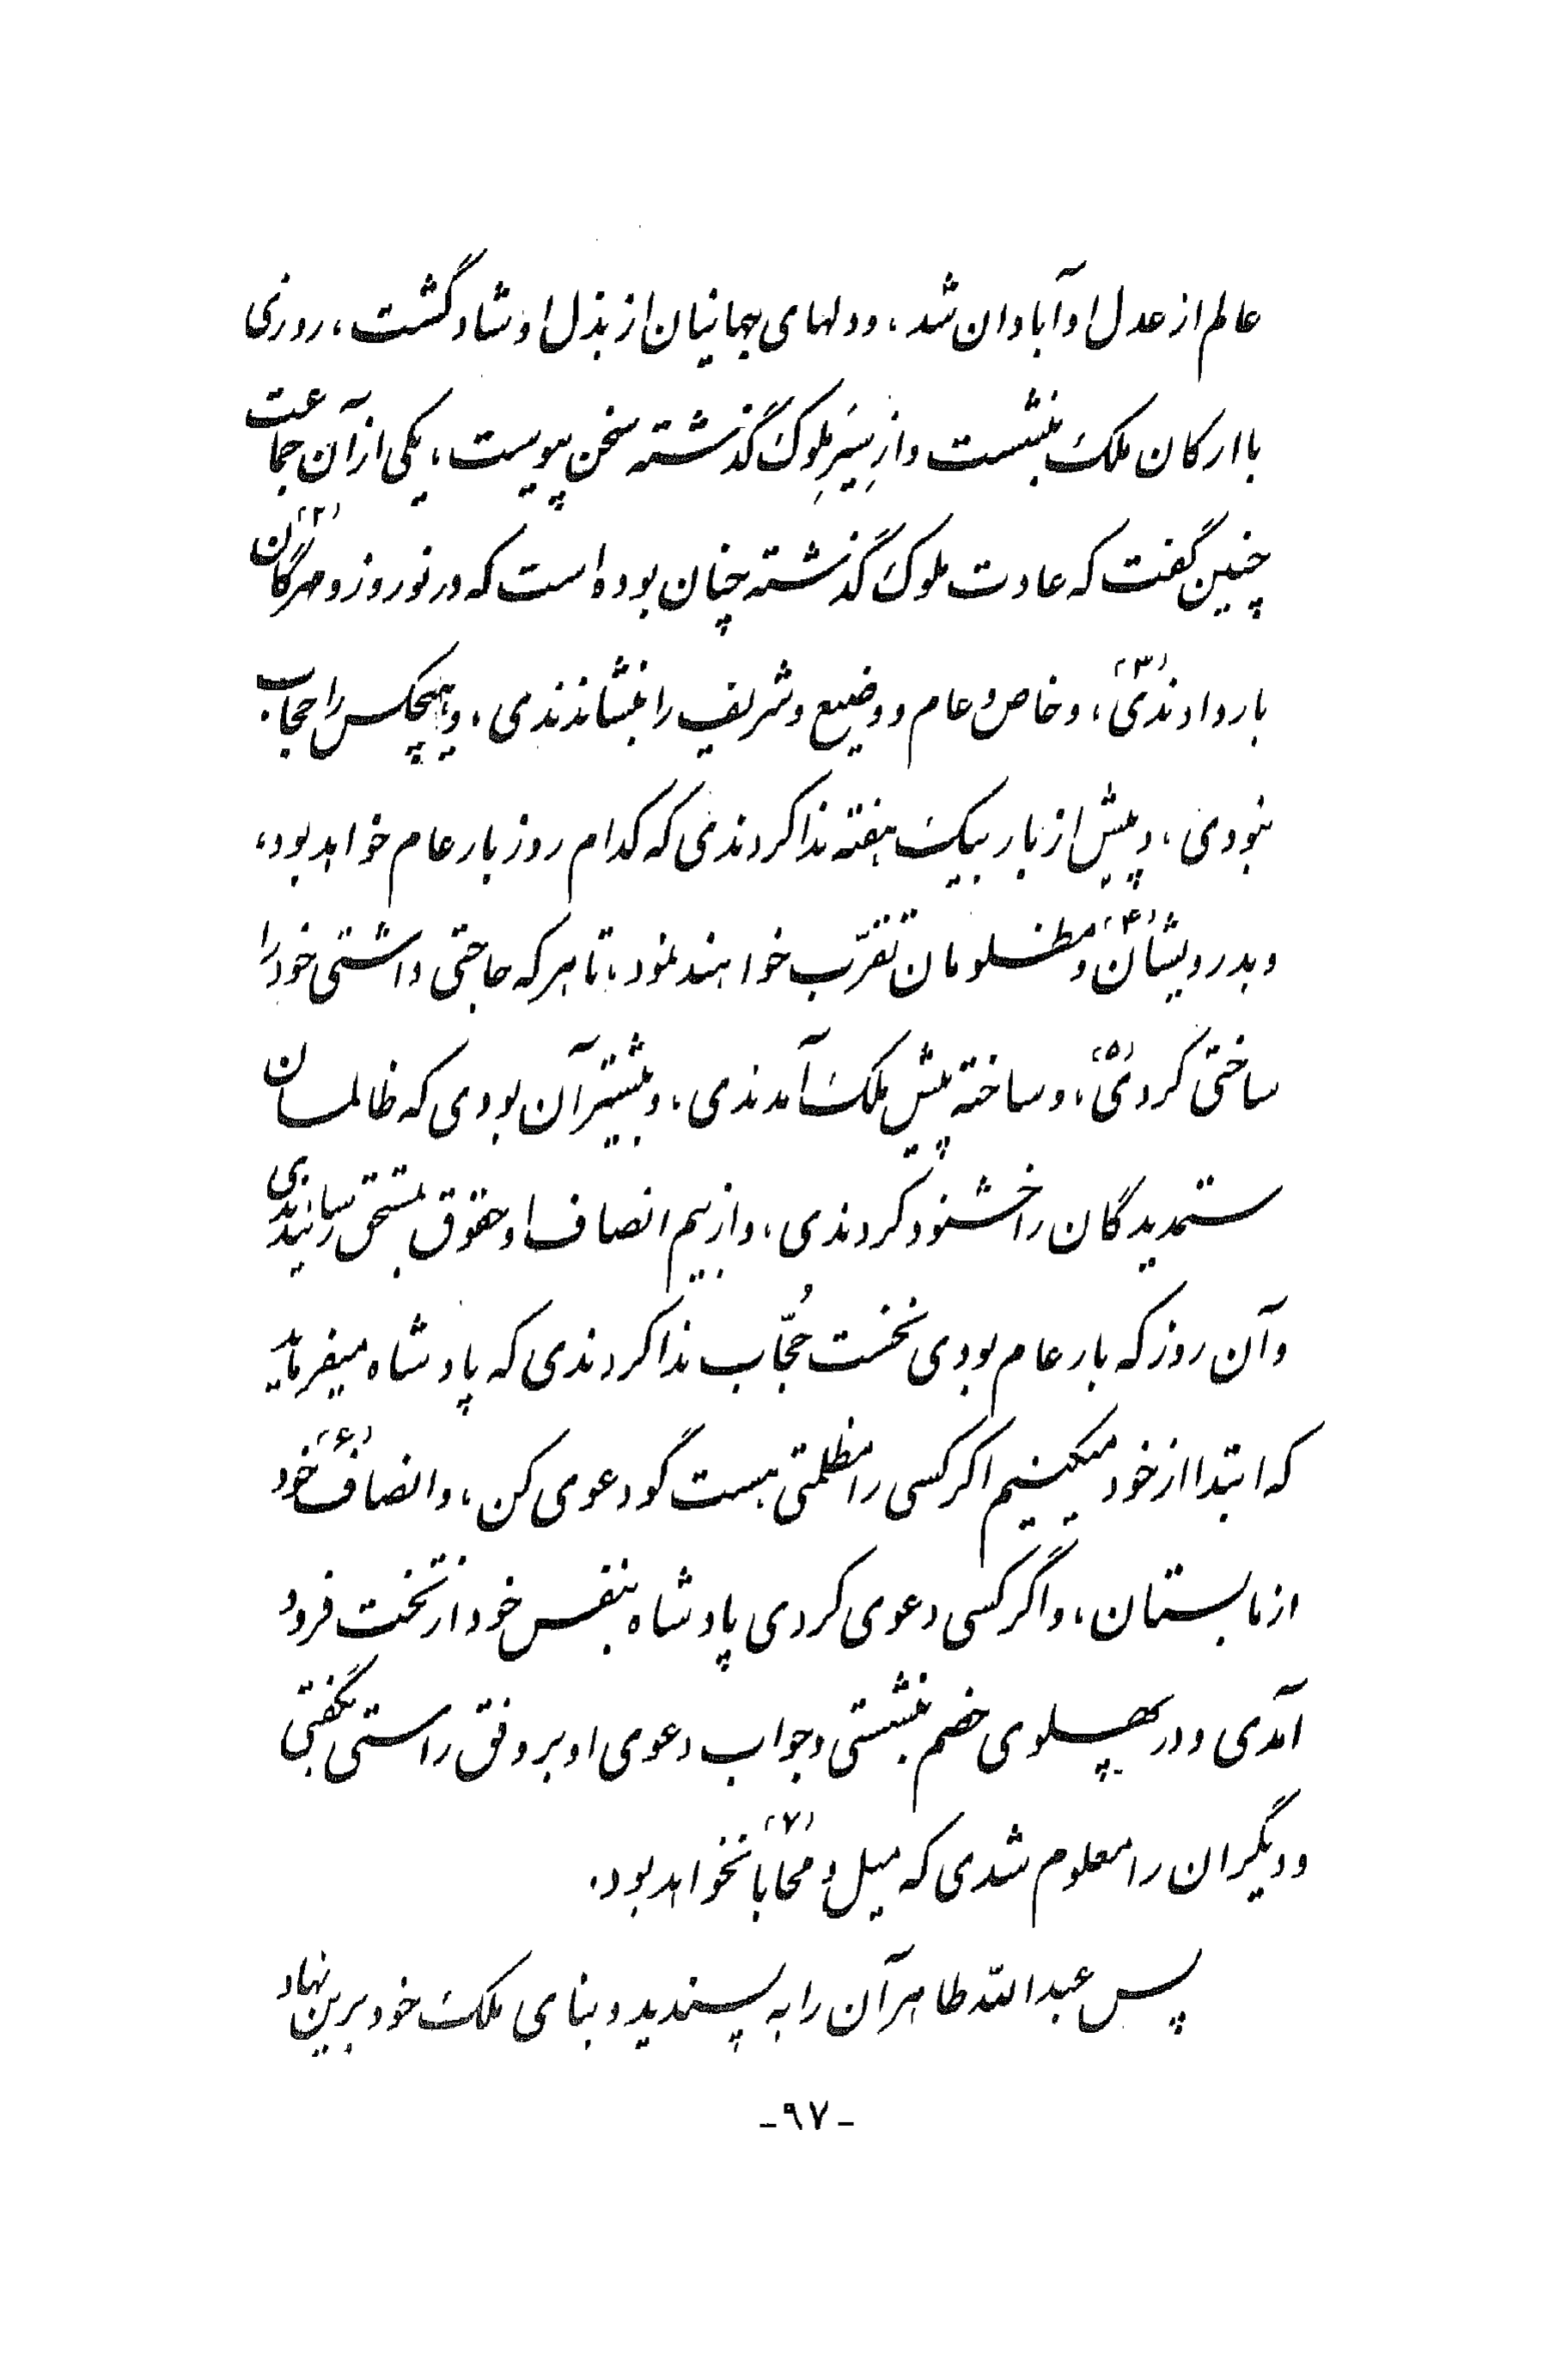 عالم از عدل او آبادان شد، و دلهای جهانیان از بذل او شاد گشت، روزی
با ارکان ملک بنشست و از سِیَرِ ملوک گذشته سخن پیوست، یکی از آن جماعت
چنین گفت که عادت ملوک گذشته چنان بوده است که در نوروز و مهرگان (۲)
بار دادندی (۳)، و خاص و عام و وضیع و شریف را بنشاندندی، و هیچکس را حجاب
نبودی، و پیش از بار بیک هفته ندا کردندی که کدام روز بار عام خواهد بود،
و بدرویشان (۴) و مظلومان تقرّب خواهند نمود، تا هر که حاجتی داشتی خود را
ساختی کردی (۵)، و ساخته پیش ملک آمدندی، و بیشتر آن بودی که ظالمان
ستمدیدگان را خشنود کردندی، و از بیم انصاف او حقوق بمستحق رسانیدندی
و آن روز که بار عام بودی نخست حُجّاب ندا کردندی که پادشاه میفرماید
که ابتدا از خود میکنیم اگر کسی را مظلمتی هست گو دعوی کن، و انصاف (۶) خود
از ما بستان، و اگر کسی دعوی کردی پادشاه بنفس خود از تخت فرود
آمدی و در پهلوی خصم بنشستی و جواب دعوی او بر وفق راستی بگفتی
و دیگران را معلوم شدی که میل و محابا (۷) نخواهد بود.
پس عبدالله طاهر آن را به پسندید و بنای ملک خود برین نهاد
- ۹۷ -